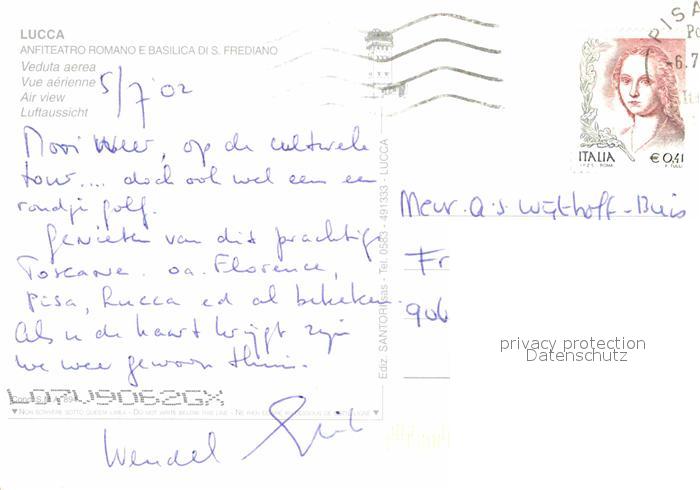 LUCCA
ANFITEATRO ROMANO E BASILICA DI S. FREDIANO
Veduta aerea
Vue aérienne
Air view
Luftaussicht
5/7 '02
Mooi weer, op de culturele
tour.... doch ook wel een en
rondje golf.
Genieten van dit prachtige
Toscane. oa. Florence,
Pisa, Lucca ed al bekeken.
Als u de kaart krijgt zijn
we weer gewoon thuis.
Wendel
Ediz. SANTORI sas - Tel. 0583 - 491333 - LUCCA
NON SCRIVERE SOTTO QUESTA LINEA - DO NOT WRITE BELOW THIS LINE - NE RIEN ECRIRE
PISA
-6.7
ITALIA
€0,41
I.P.Z.S. ROMA
F. TULLI
Mevr. A.S. Wijthoff-Buis
Fr
906
privacy protection
Datenschutz